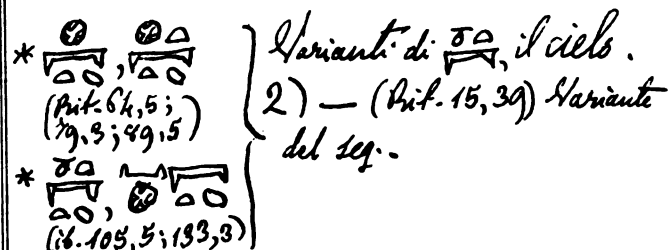 *
(Rit. 64,5;
79,3; 89,5)
*
(ib. 105,5; 133,3)
Varianti di , il cielo.
2) — (Rit. 15,39) Variante
del seg..